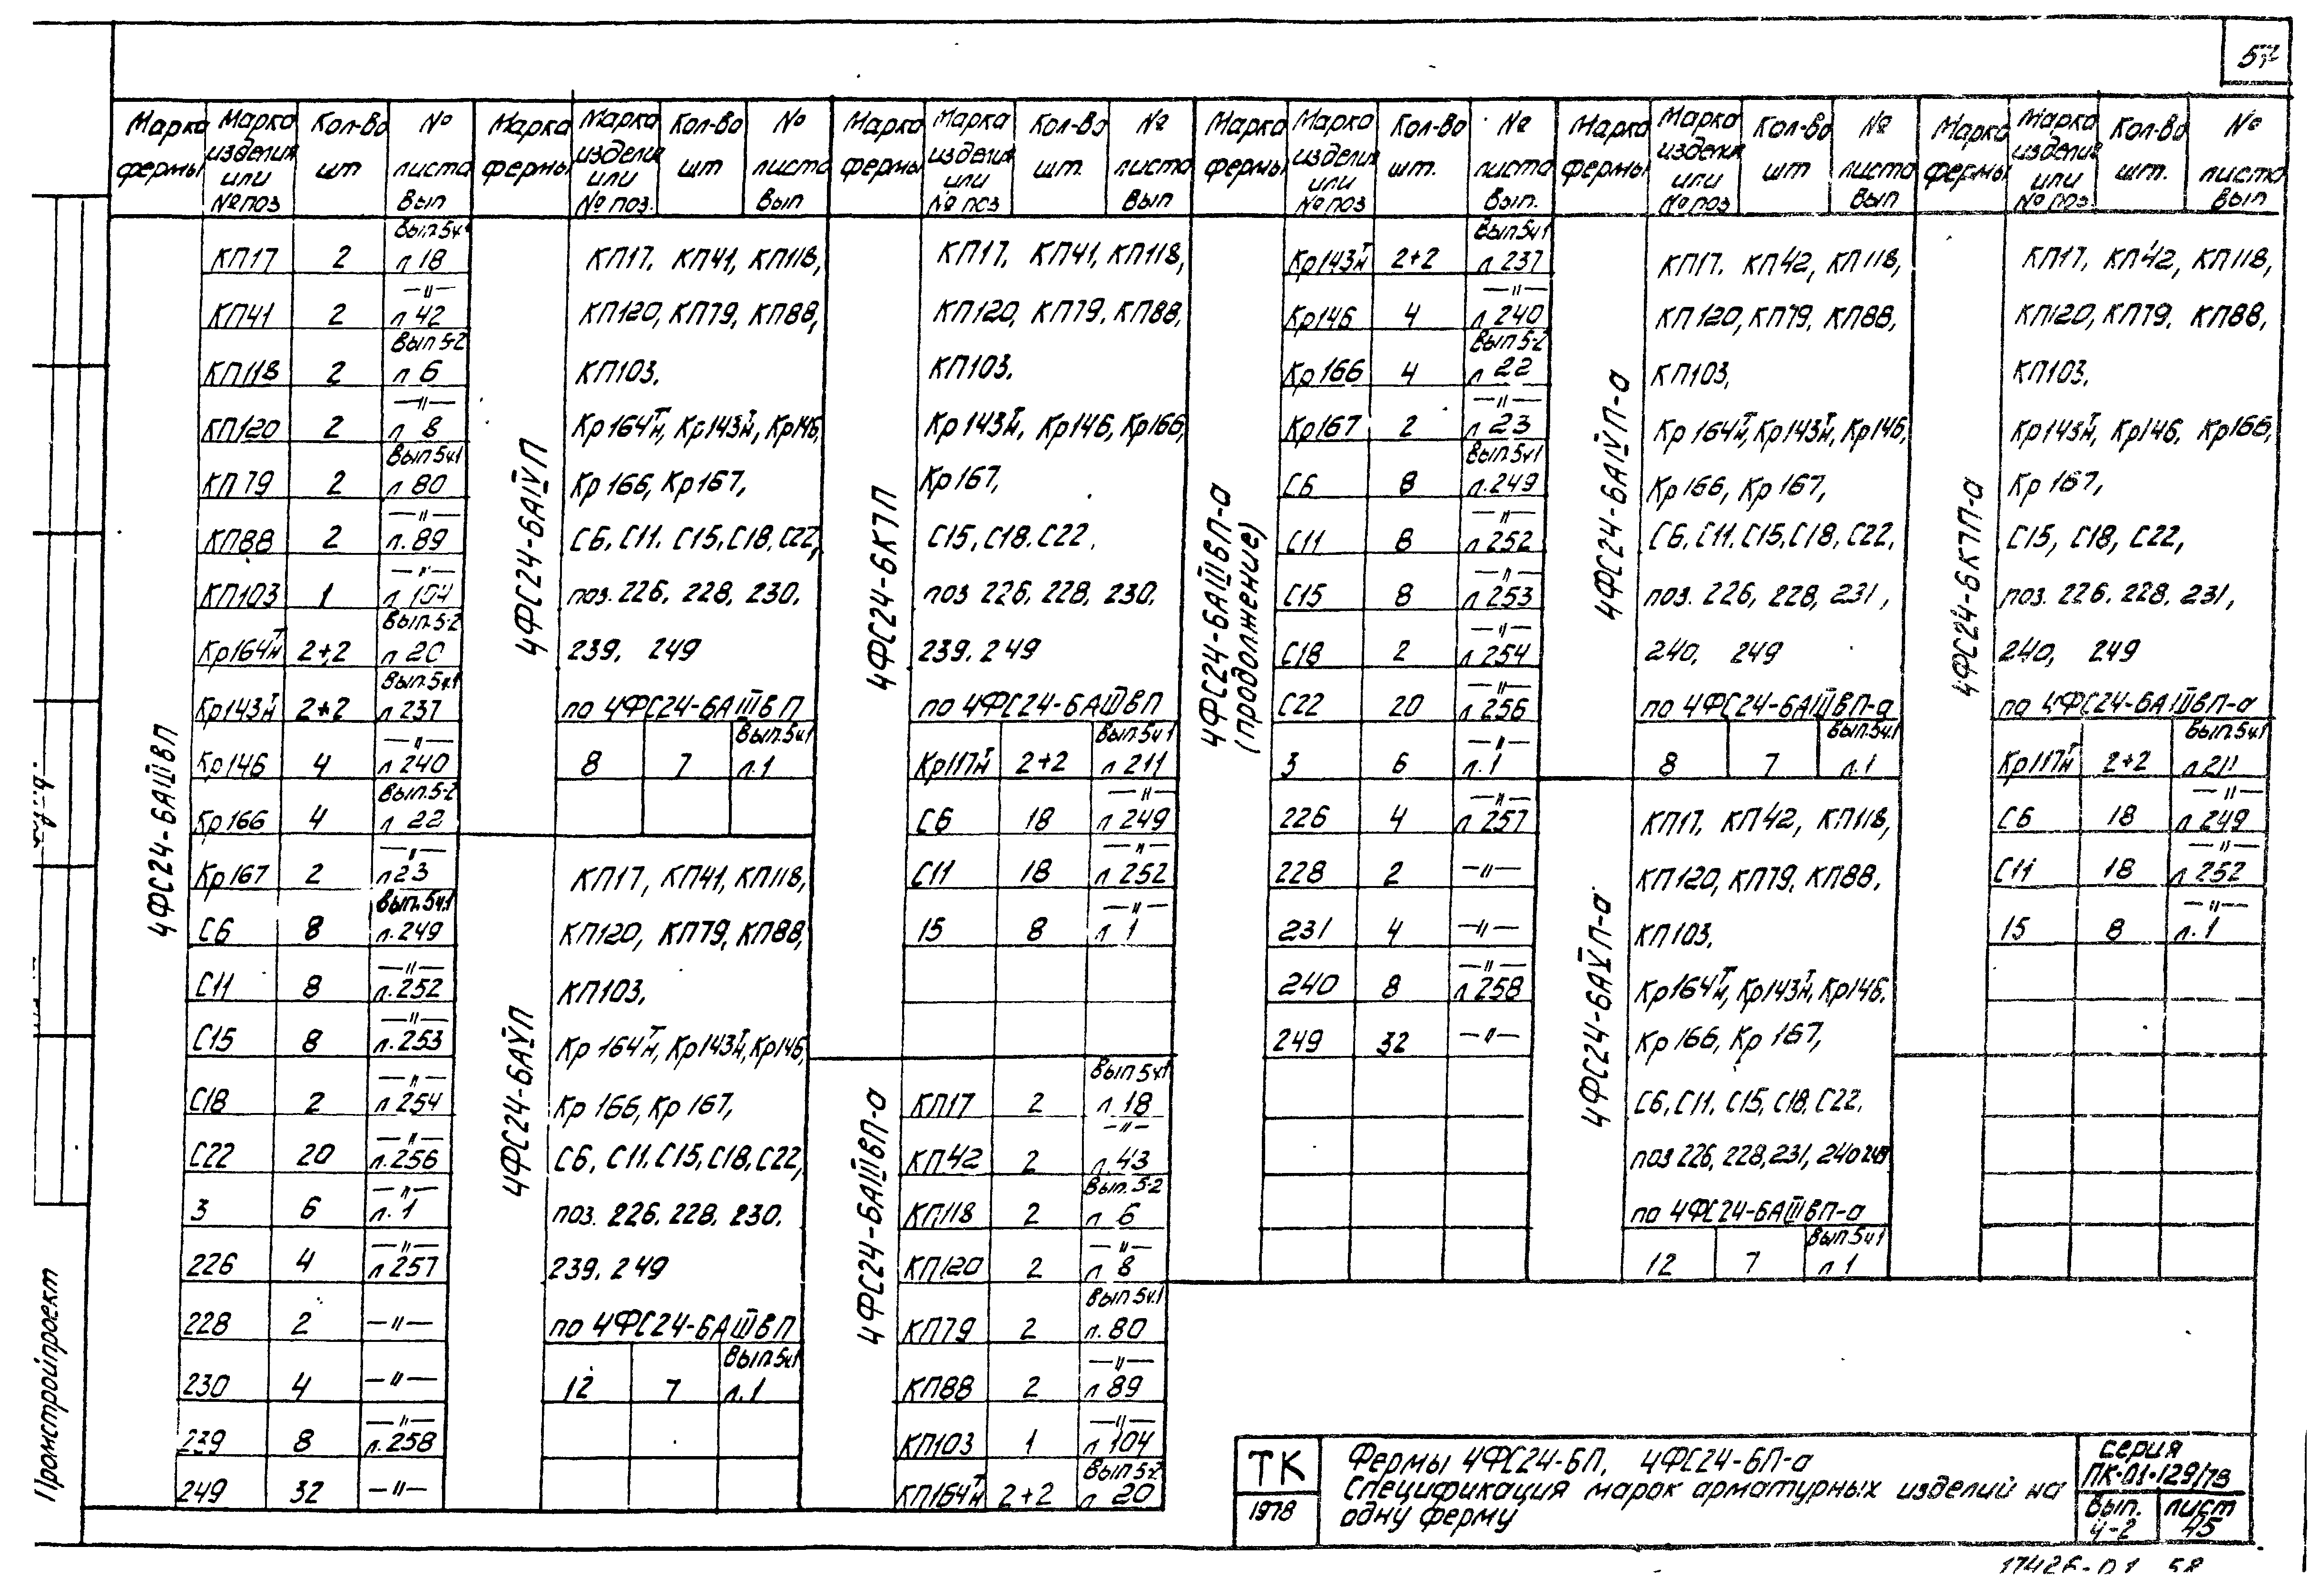 57
Марка фермы | Марка изделия или № поз | Кол-во шт | № листа Вып
4ФС24-6АIIIВП
КП17 2 Вып.5ч1 л 18
КП41 2 —"— л 42
КП118 2 Вып 5-2 л 6
КП120 2 —"— л 8
КП79 2 Вып.5ч1 л 80
КП88 2 —"— л. 89
КП103 1 —"— л 104
Кр164Т/Н 2+2 Вып.5-2 л 20
Кр143Т/Н 2+2 Вып.5ч.1 л 237
Кр146 4 —"— л 240
Кр166 4 Вып.5-2 л 22
Кр167 2 —"— л 23
С6 8 Вып.5ч.1 л.249
С11 8 —"— л.252
С15 8 —"— л.253
С18 2 —"— л 254
С22 20 —"— л.256
3 6 —"— л.1
226 4 —"— л 257
228 2 —"—
230 4 —"—
239 8 —"— л.258
249 32 —"—
Марка фермы | Марка изделия или № поз. | Кол-во шт | № листа Вып
4ФС24-6АIVП
КП17, КП41, КП118,
КП120, КП79, КП88,
КП103,
Кр164Т/Н, Кр143Т/Н, Кр146,
Кр166, Кр167,
С6, С11, С15, С18, С22,
поз. 226, 228, 230,
239, 249
по 4ФС24-6АIIIВП
8 7 Вып.5ч1 л.1
4ФС24-6АVП
КП17, КП41, КП118,
КП120, КП79, КП88,
КП103,
Кр164Т/Н, Кр143Т/Н, Кр146,
Кр166, Кр167,
С6, С11, С15, С18, С22,
поз. 226, 228, 230,
239, 249
по 4ФС24-6АIIIВП
12 7 Вып.5ч1 л.1
Марка фермы | Марка изделия или № поз | Кол-во шт. | № листа Вып
4ФС24-6К7П
КП17, КП41, КП118,
КП120, КП79, КП88,
КП103,
Кр143Т/Н, Кр146, Кр166,
Кр167,
С15, С18, С22,
поз 226, 228, 230,
239, 249
по 4ФС24-6АIIIВП
Кр117Т/Н 2+2 Вып.5ч1 л 211
С6 18 —"— л 249
С11 18 —"— л 252
15 8 —"— л 1
4ФС24-6АIIIВП-а
КП17 2 Вып 5ч1 л 18
КП42 2 —"— л.43
КП118 2 Вып. 5-2 л 6
КП120 2 —"— л 8
КП79 2 Вып 5ч.1 л. 80
КП88 2 —"— л 89
КП103 1 —"— л 104
КП164Т/Н 2+2 Вып 5-2 л 20
Марка фермы | Марка изделия или № поз | Кол-во шт. | № листа Вып.
4ФС24-6АIIIВП-а
(продолжение)
Кр143Т/Н 2+2 Вып 5ч1 л 237
Кр146 4 —"— л 240
Кр166 4 Вып 5-2 л 22
Кр167 2 —"— л 23
С6 8 Вып.5ч1 л.249
С11 8 —"— л 252
С15 8 —"— л 253
С18 2 —"— л 254
С22 20 —"— л 256
3 6 —"— л.1
226 4 —"— л 257
228 2 —"—
231 4 —"—
240 8 —"— л 258
249 32 —"—
Марка фермы | Марка изделия или № поз | Кол-во шт | № листа Вып
4ФС24-6АIVП-а
КП17, КП42, КП118,
КП120, КП79, КП88,
КП103,
Кр164Т/Н, Кр143Т/Н, Кр146,
Кр166, Кр167,
С6, С11, С15, С18, С22,
поз. 226, 228, 231,
240, 249
по 4ФС24-6АIIIВП-а
8 7 Вып.5ч1 л.1
4ФС24-6АVП-а
КП17, КП42, КП118,
КП120, КП79, КП88,
КП103,
Кр164Т/Н, Кр143Т/Н, Кр146,
Кр166, Кр167,
С6, С11, С15, С18, С22,
поз 226, 228, 231, 240 249
по 4ФС24-6АIIIВП-а
12 7 Вып 5ч1 л 1
Марка фермы | Марка изделия или № поз | Кол-во шт. | № листа Вып
4ФС24-6К7П-а
КП17, КП42, КП118,
КП120, КП79, КП88,
КП103,
Кр143Т/Н, Кр146, Кр166,
Кр167,
С15, С18, С22,
поз. 226, 228, 231,
240, 249
по 4ФС24-6АIIIВП-а
Кр117Т/Н 2+2 Вып.5ч1 л 211
С6 18 —"— л 249
С11 18 —"— л 252
15 8 —"— л. 1
Промстройпроект
ТК
1978
Фермы 4ФС24-6П, 4ФС24-6П-а
Спецификация марок арматурных изделий на
одну ферму
серия
ПК-01-129/78
Вып. 4-2
лист 45
17426-01 58